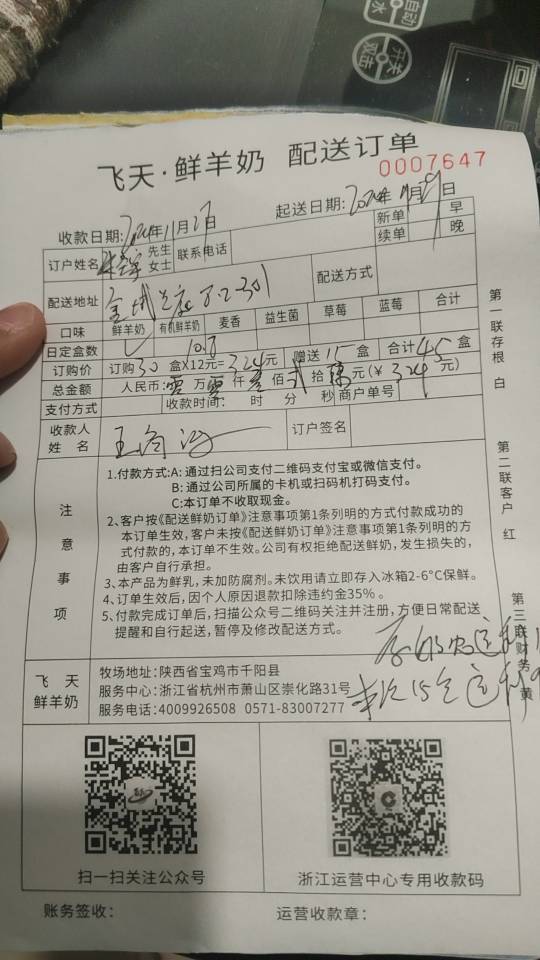 自动
水
开关
双击
飞天·鲜羊奶 配送订单
0007647
收款日期: 2024年11月27日 起送日期: 2024年11月 日
订户姓名 先生 女士 联系电话 新单 续单 早 晚
配送地址 8-2-301 配送方式
口味 鲜羊奶 有机鲜羊奶 麦香 益生菌 草莓 蓝莓 合计
日定盒数 10.8
订购价 订购30盒X12元=324元 赠送15盒 合计45盒
总金额 人民币: 零万零仟叁佰贰拾肆元(¥ 324元)
支付方式 收款时间: 时 分 秒 商户单号
收款人姓名 订户签名
注意事项
1.付款方式:A: 通过扫公司支付二维码支付宝或微信支付。
B: 通过公司所属的卡机或扫码机打码支付。
C:本订单不收取现金。
2、客户按《配送鲜奶订单》注意事项第1条列明的方式付款成功的
本订单生效,客户未按《配送鲜奶订单》注意事项第1条列明的方
式付款的,本订单不生效。公司有权拒绝配送鲜奶,发生损失的,
由客户自行承担。
3、本产品为鲜乳,未加防腐剂。未饮用请立即存入冰箱2-6°C保鲜。
4、订单生效后,因个人原因退款扣除违约金35%。
5、付款完成订单后,扫描公众号二维码关注并注册,方便日常配送
提醒和自行起送,暂停及修改配送方式。
飞天鲜羊奶
牧场地址:陕西省宝鸡市千阳县
服务中心:浙江省杭州市萧山区崇化路31号
服务电话:4009926508 0571-83007277
扫一扫关注公众号 浙江运营中心专用收款码
账务签收: 运营收款章:
第一联存根 白
第二联客户 红
第三联财务 黄